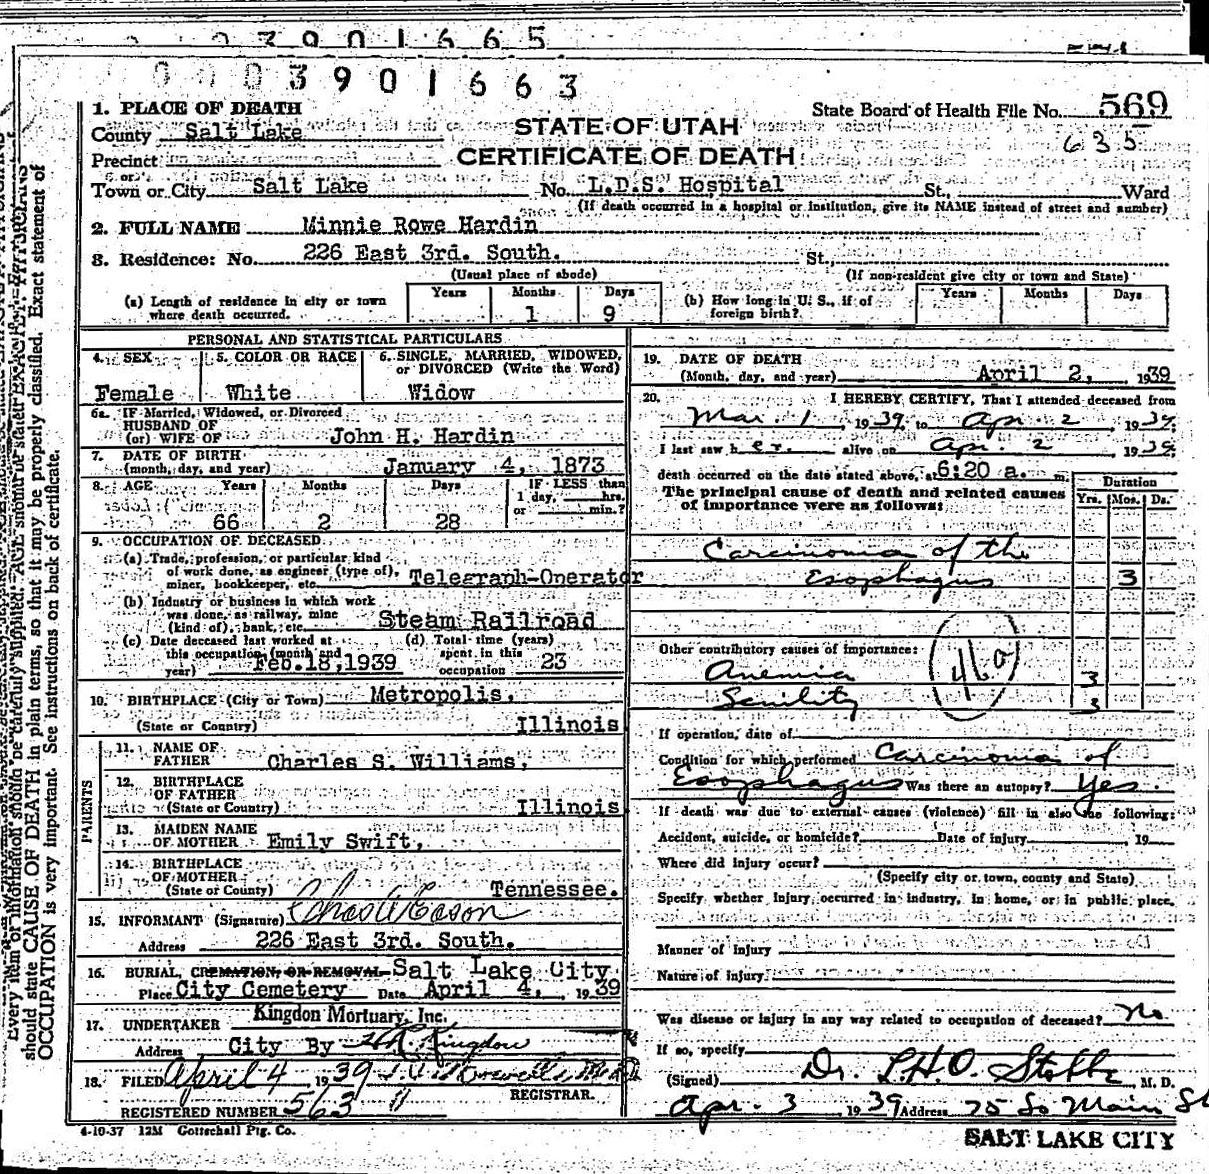 3901665
0003901663
1. PLACE OF DEATH
State Board of Health File No. 569
County Salt Lake
STATE OF UTAH
635
Precinct
CERTIFICATE OF DEATH
or
Town or City Salt Lake No. L.D.S. Hospital St., Ward
(If death occurred in a hospital or institution, give its NAME instead of street and number)
2. FULL NAME Minnie Rowe Hardin
3. Residence: No. 226 East 3rd. South. St.,
(Usual place of abode) (If non-resident give city or town and State)
(a) Length of residence in city or town where death occurred. Years Months 1 Days 9
(b) How long in U. S., if of foreign birth? Years Months Days
PERSONAL AND STATISTICAL PARTICULARS
4. SEX Female
5. COLOR OR RACE White
6. SINGLE, MARRIED, WIDOWED, or DIVORCED (Write the Word) Widow
6a. IF Married, Widowed, or Divorced
HUSBAND OF
(or) WIFE OF John H. Hardin
7. DATE OF BIRTH
(month, day, and year) January 4, 1873
8. AGE Years 66 Months 2 Days 28
IF LESS than 1 day, hrs. or min.?
9. OCCUPATION OF DECEASED
(a) Trade, profession, or particular kind
of work done, as engineer (type of),
miner, bookkeeper, etc. Telegraph-Operator
(b) Industry or business in which work
was done, as railway, mine
(kind of), bank, etc. Steam Railroad
(c) Date deceased last worked at
this occupation (month and
year) Feb.18,1939
(d) Total time (years)
spent in this
occupation 23
10. BIRTHPLACE (City or Town) Metropolis,
(State or Country) Illinois
PARENTS
11. NAME OF
FATHER Charles S. Williams,
12. BIRTHPLACE
OF FATHER
(State or Country) Illinois
13. MAIDEN NAME
OF MOTHER Emily Swift,
14. BIRTHPLACE
OF MOTHER
(State or County) Tennessee.
15. INFORMANT (Signature) Chas W Eason
Address 226 East 3rd. South.
16. BURIAL, CREMATION, OR REMOVAL Salt Lake City
Place City Cemetery Date April 4, 1939
17. UNDERTAKER Kingdon Mortuary, Inc.
Address City By Kingdon
18. FILED April 4 1939
REGISTRAR.
REGISTERED NUMBER 563
4-10-37 12M Gottschall Ptg. Co.
19. DATE OF DEATH
(Month, day, and year) April 2, 1939
20. I HEREBY CERTIFY, That I attended deceased from
Mar. 1, 1939, to Apr. 2, 1939;
I last saw h er. alive on Apr. 2, 1939
death occurred on the date stated above, at 6:20 a. m.
The principal cause of death and related causes
of importance were as follows:
Duration
Yrs. Mos. Ds.
Carcinoma of the
Esophagus 3
Other contributory causes of importance:
460
Anemia 3
Senility 3
If operation, date of
Condition for which performed Carcinoma of
Esophagus Was there an autopsy? Yes.
If death was due to external causes (violence) fill in also the following:
Accident, suicide, or homicide? Date of injury , 19
Where did injury occur?
(Specify city or town, county and State)
Specify whether injury occurred in industry, in home, or in public place.
Manner of injury
Nature of injury
Was disease or injury in any way related to occupation of deceased? No
If so, specify
(Signed) Dr. L.H.O. Stobbe, M. D.
Apr. 3 1939 Address 75 So Main St
SALT LAKE CITY
should state CAUSE OF DEATH in plain terms, so that it may be properly classified. Exact statement of
OCCUPATION is very important. See instructions on back of certificate.